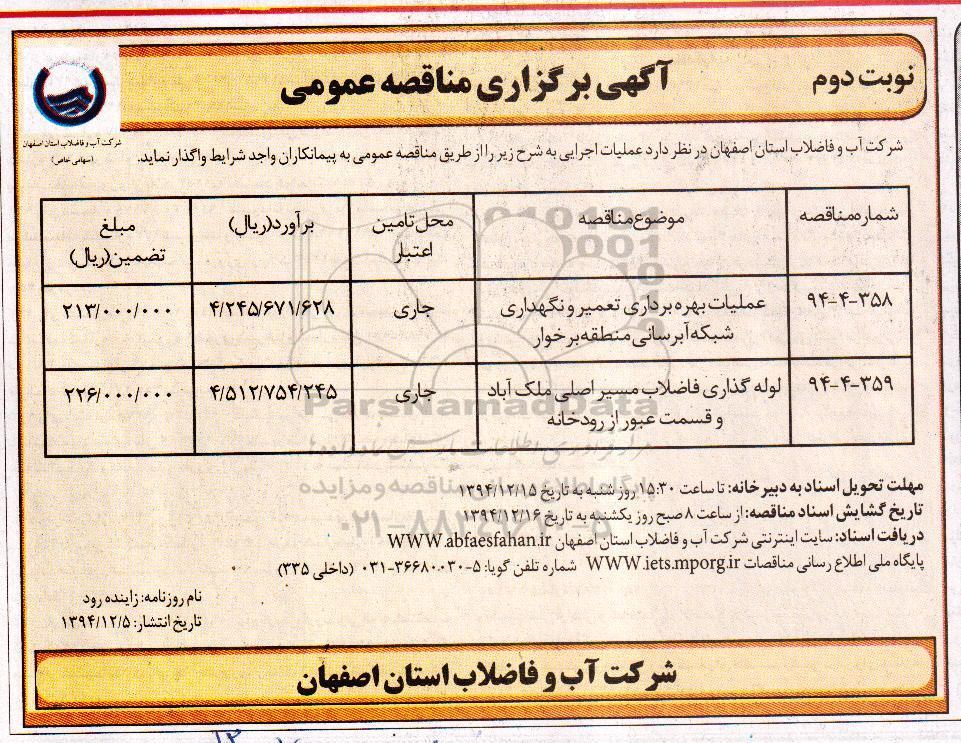 نوبت دوم
آگهی برگزاری مناقصه عمومی
شرکت آب و فاضلاب استان اصفهان
(سهامی خاص)
شرکت آب و فاضلاب استان اصفهان در نظر دارد عملیات اجرایی به شرح زیر را از طریق مناقصه عمومی به پیمانکاران واجد شرایط واگذار نماید.
شماره مناقصه موضوع مناقصه محل تامین اعتبار برآورد(ریال) مبلغ تضمین(ریال)
۹۴-۴-۳۵۸ عملیات بهره برداری تعمیر و نگهداری شبکه آبرسانی منطقه برخوار جاری ۴/۲۴۵/۶۷۱/۶۲۸ ۲۱۳/۰۰۰/۰۰۰
۹۴-۴-۳۵۹ لوله گذاری فاضلاب مسیر اصلی ملک آباد و قسمت عبور از رودخانه جاری ۴/۵۱۲/۷۵۴/۲۴۵ ۲۲۶/۰۰۰/۰۰۰
ParsNamadData
پایگاه اطلاع رسانی مناقصه و مزایده
مهلت تحویل اسناد به دبیرخانه: تا ساعت ۱۵:۳۰ روز شنبه به تاریخ ۱۳۹۴/۱۲/۱۵
تاریخ گشایش اسناد مناقصه: از ساعت ۸ صبح روز یکشنبه به تاریخ ۱۳۹۴/۱۲/۱۶
دریافت اسناد: سایت اینترنتی شرکت آب و فاضلاب استان اصفهان WWW.abfaesfahan.ir
پایگاه ملی اطلاع رسانی مناقصات WWW.iets.mporg.ir شماره تلفن گویا: ۵-۰۳۱-۳۶۶۸۰۰۳۰ (داخلی ۳۳۵)
نام روزنامه: زاینده رود
تاریخ انتشار: ۱۳۹۴/۱۲/۵
شرکت آب و فاضلاب استان اصفهان